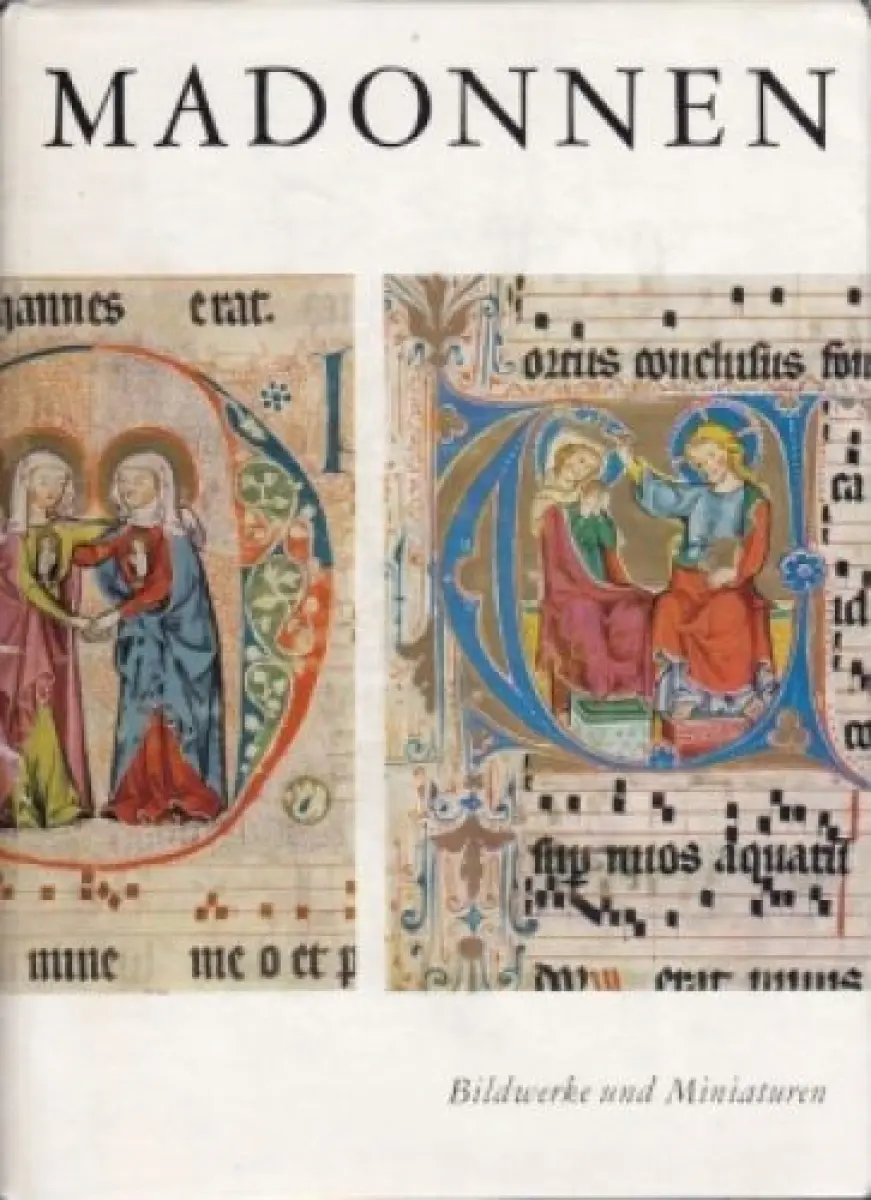 MADONNEN
hannes erat.
mine me o et p
ortus conclusus fon
ca
id
co
sup nuos aquaru
erat unius
Bildwerke und Miniaturen